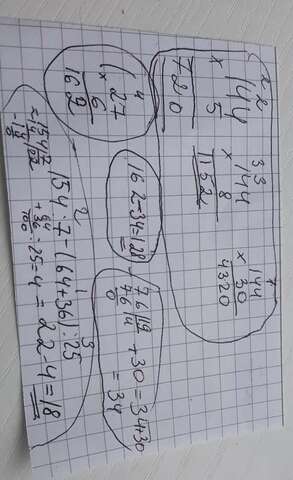 2 2
144
× 5
720
3 3
144
× 8
1152
144
× 30
4320
4
27
× 6
162
162-34=128
76 19
76 4 +30=34+30
0
= 34
2 1 3
154:7-(64+36):25
154 7
14 22
14
64
+ 36
100
:25=4 = 22-4=18